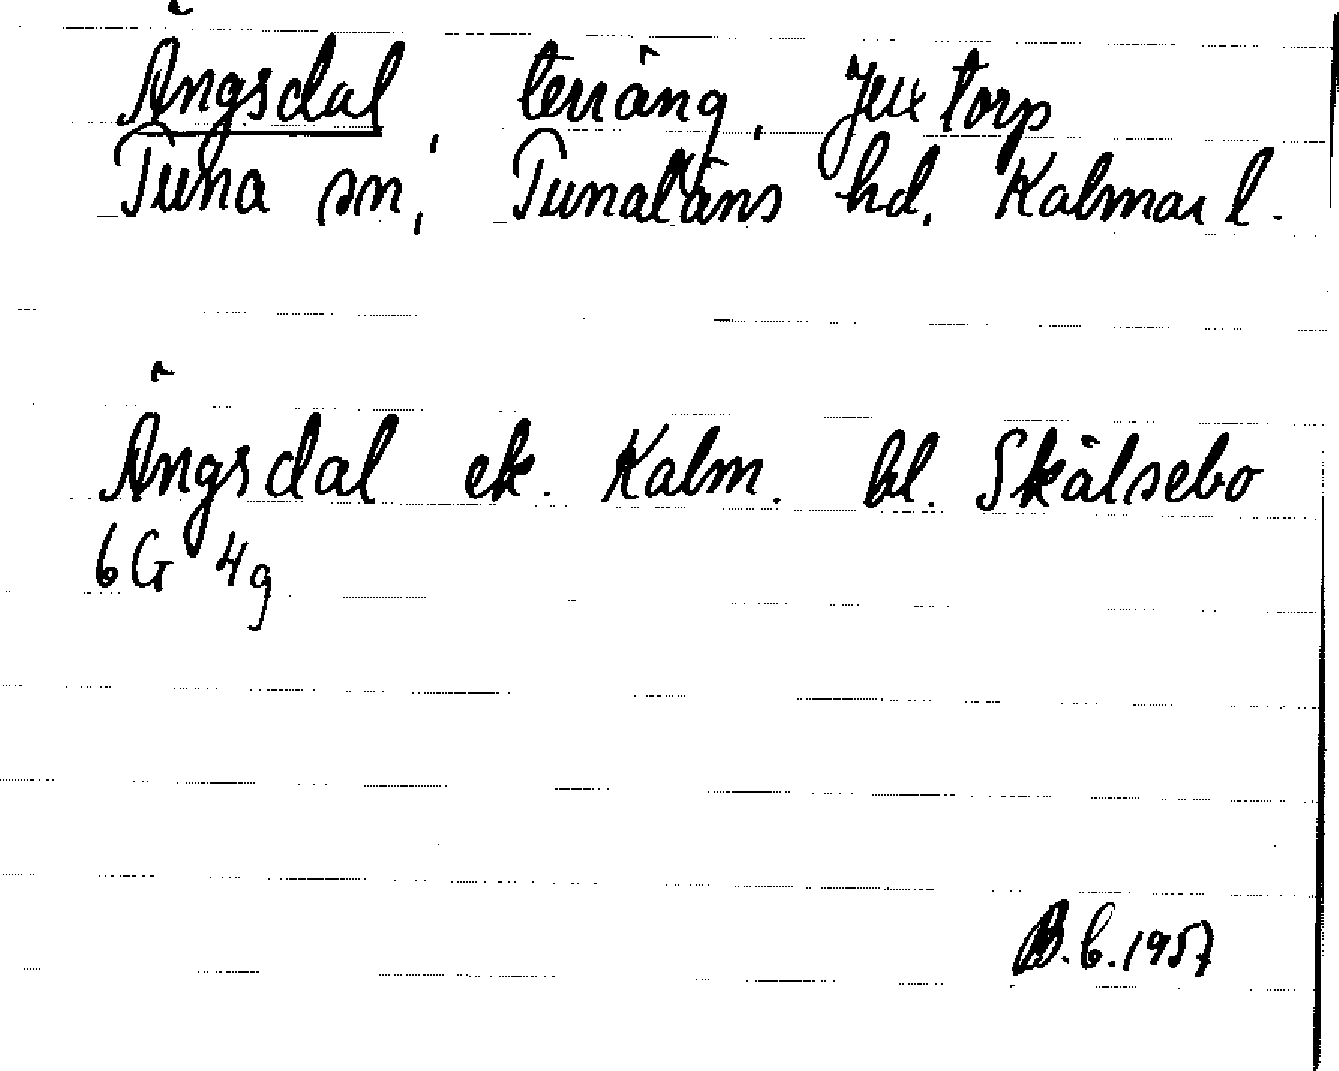 Ängsdal, terräng, Juxtorp
Tuna sn, Tunaläns hd. Kalmar l.
Ängsdal ek. Kalm. bl. Skälsebo
6G 4g
B.C. 1957